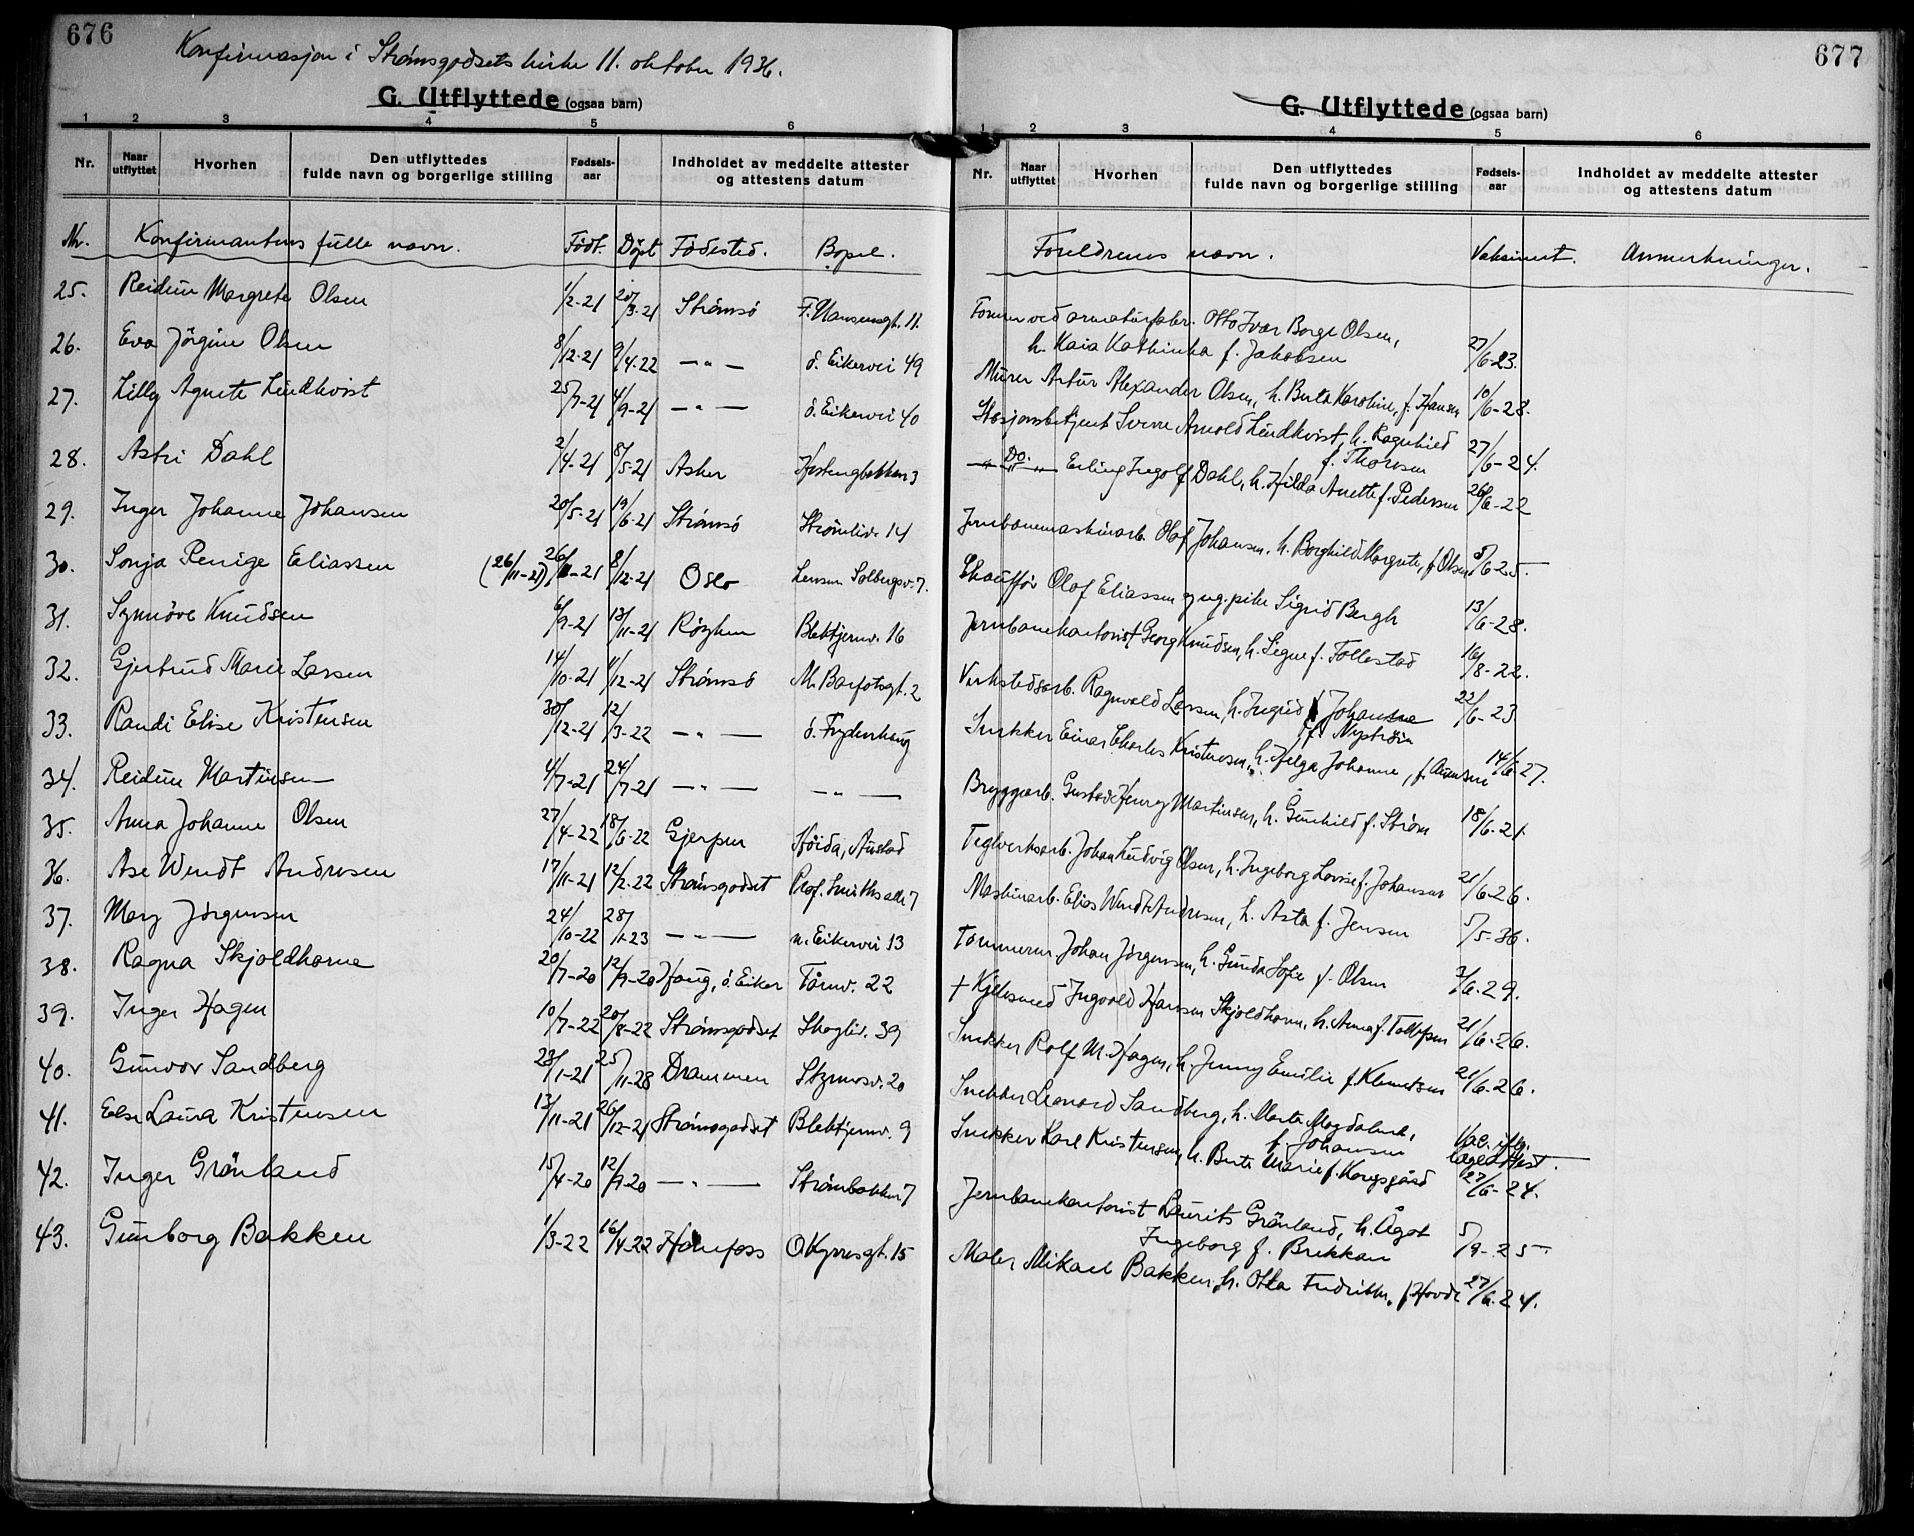 676
Konfirmasjon i Strømsgodsets kirke 11. oktober 1936.
G. Utflyttede (ogsaa barn)
1 2 3 4 5 6
Nr. Naar utflyttet Hvorhen Den utflyttedes fulde navn og borgerlige stilling Fødsels-aar Indholdet av meddelte attester og attestens datum
Nr. Konfirmantens fulle navn. Født. Døpt Fødested. Bopel.
25. Reidun Margrete Olsen 1/2-21 20/3-21 Strømsö F. Nansensgt. 11.
26. Eva Jörgine Olsen 8/12-21 9/4-22 —„— ö. Eikervei 49
27. Lilly Agnete Lindkvist 25/7-21 4/9-21 —„— ö. Eikervei 40
28. Astri Dahl 2/4-21 8/5-21 Asker
29. Inger Johanne Johansen 20/5-21 19/6-21 Strömsö Strömliv. 14
30. Sonja Eliassen (26/11-21) 8/12-21 Oslo Solbergsv. 7.
31. Synnöve Knudsen 6/9-21 13/11-21 Røyken Blektjernv. 16
32. Gjertrud Marie Larsen 14/10-21 11/12-21 Strømsö M. Barfotsgt. 2
33. Randi Elise Kristensen 30/12-21 12/3-22 —„— ö. Frydenhaug
34. Reidun Martinsen 4/7-21 24/7-21 —„— —„—
35. Anna Johanne Olsen 27/4-22 18/6-22 Gjerpen Austad
36. Åse Wendt Andresen 17/11-21 12/2-22 Strømsgodset Prof. Smiths alle 7
37. Mary Jørgensen 24/10-22 28/1-23 —„— n. Eikervei 13
38. Ragna Skjoldhorne 20/7-20 12/9-20 Haug, ö. Eiker Tårnv. 22
39. Inger Hagen 10/7-22 20/8-22 Strømsgodset Skogliv. 39
40. Gunvor Sandberg 23/1-21 25/11-28 Drammen Styrmosv. 20
41. Else Laura Kristensen 13/11-21 26/12-21 Strømsgodset Blektjernv. 9
42. Inger Grönland 15/4-20 12/9-20 —„— Strömbakken 7
43. Gunborg Bakken 1/3-22 16/4-22 Hönefoss O Kyrresgt. 15
677
G. Utflyttede (ogsaa barn)
1 2 3 4 5 6
Nr. Naar utflyttet Hvorhen Den utflyttedes fulde navn og borgerlige stilling Fødsels-aar Indholdet av meddelte attester og attestens datum
Foreldrenes navn. Vaksinert. Anmerkninger.
Former ved armaturfabr. Otto Ivar Borge Olsen,
h. Kaia Kathinka f. Jakobsen 27/6-23.
Murer Artur Alexander Olsen, h. Berta Karoline, f. Hansen 10/6-28.
Stasjonsbetjent Sverre Arnold Lindkvist, h. Ragnhild
f. Thoresen 27/6-24.
—„— Do. „ Erling Ingolf Dahl, h. Hilda Anette f. Pedersen 26/6-22
Jernbanemaskinarb. Olaf Johansen, h. Borghild Margrete, f. Olsen 5/6-25.
Chauffør Olof Eliassen og ug. pike Sigrid Bergh 13/6-28.
Jernbanekontorist Georg Knudsen, h. Signe f. Follestad 16/8-22.
Verkstedsarb. Ragnvald Larsen, h. Ingrid Johanne
f. Nyström 22/6-23
Snekker Einar Charles Kristensen, h. Helga Johanne, f. 14/6-27.
Bryggearb. Gustav Henry Martinsen, h. Gunhild f. Ström 18/6-21.
Teglverksarb. Johan Ludvig Olsen, h. Ingeborg Lovise f. Johansen 21/6-26.
Maskinarb. Elias Wendt Andresen, h. Asta f. Jensen 5/5-36.
Tømmerm Johan Jörgensen, h. Gunda Sofie f. Olsen 3/6.29.
† Kjelesmed Ingvald Hansen Skjoldhorne, h. Anna f. Tollefsen 21/6-26.
Snekker Rolf M. Hagen, h. Jenny Emilie f. Klemetsen 21/6-26.
Snekker Leonard Sandberg, h. Marta Magdalene,
f. Johansen Vac. iflg. lægeattest.
Snekker Karl Kristensen, h. Berte Marie f. Kongsgård 27/6-24.
Jernbanekontorist Laurits Grönland, h. Ågot
Ingeborg f. Brekkan 5/9-25
Maler Mikael Bakken, h. Otta Fredrikke, f. Hovde 27/6.24.